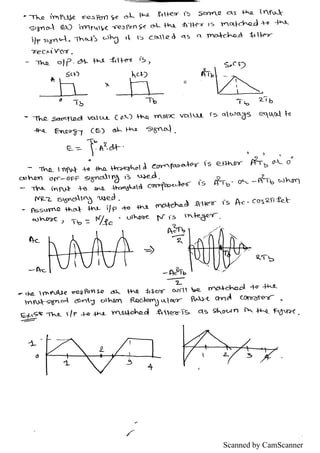 - The impulse response of the filter is same as the input
signal (or) impulse response of the filter is matched to the
i/p signal. That's why it is called as a matched filter
receiver.
- The o/p of the filter is,
S(t) h(t) So(t)
A A²Tb
x
0 Tb Tb Tb 2Tb
- The sampled value (or) the max value is always equal to
the Energy (E) of the signal.
E = ∫ A² dt.
- The input to the threshold comparator is either A²Tb or 0
when ON-OFF signaling is used.
- The input to the threshold comparator is A²Tb or -A²Tb when
NRZ signaling used.
- Assume that the i/p to the matched filter is Ac. cos2πfct
where, Tb = N/fc . where N is integer.
Ac A²Tb/2
-Ac -A²Tb/2 2Tb
- the impulse response of the filter will be matched to the
input signal only when Rectangular Pulse and
The i/p to the matched filter is as shown in the figure.
1 2
0 1 3 4 1 2 3